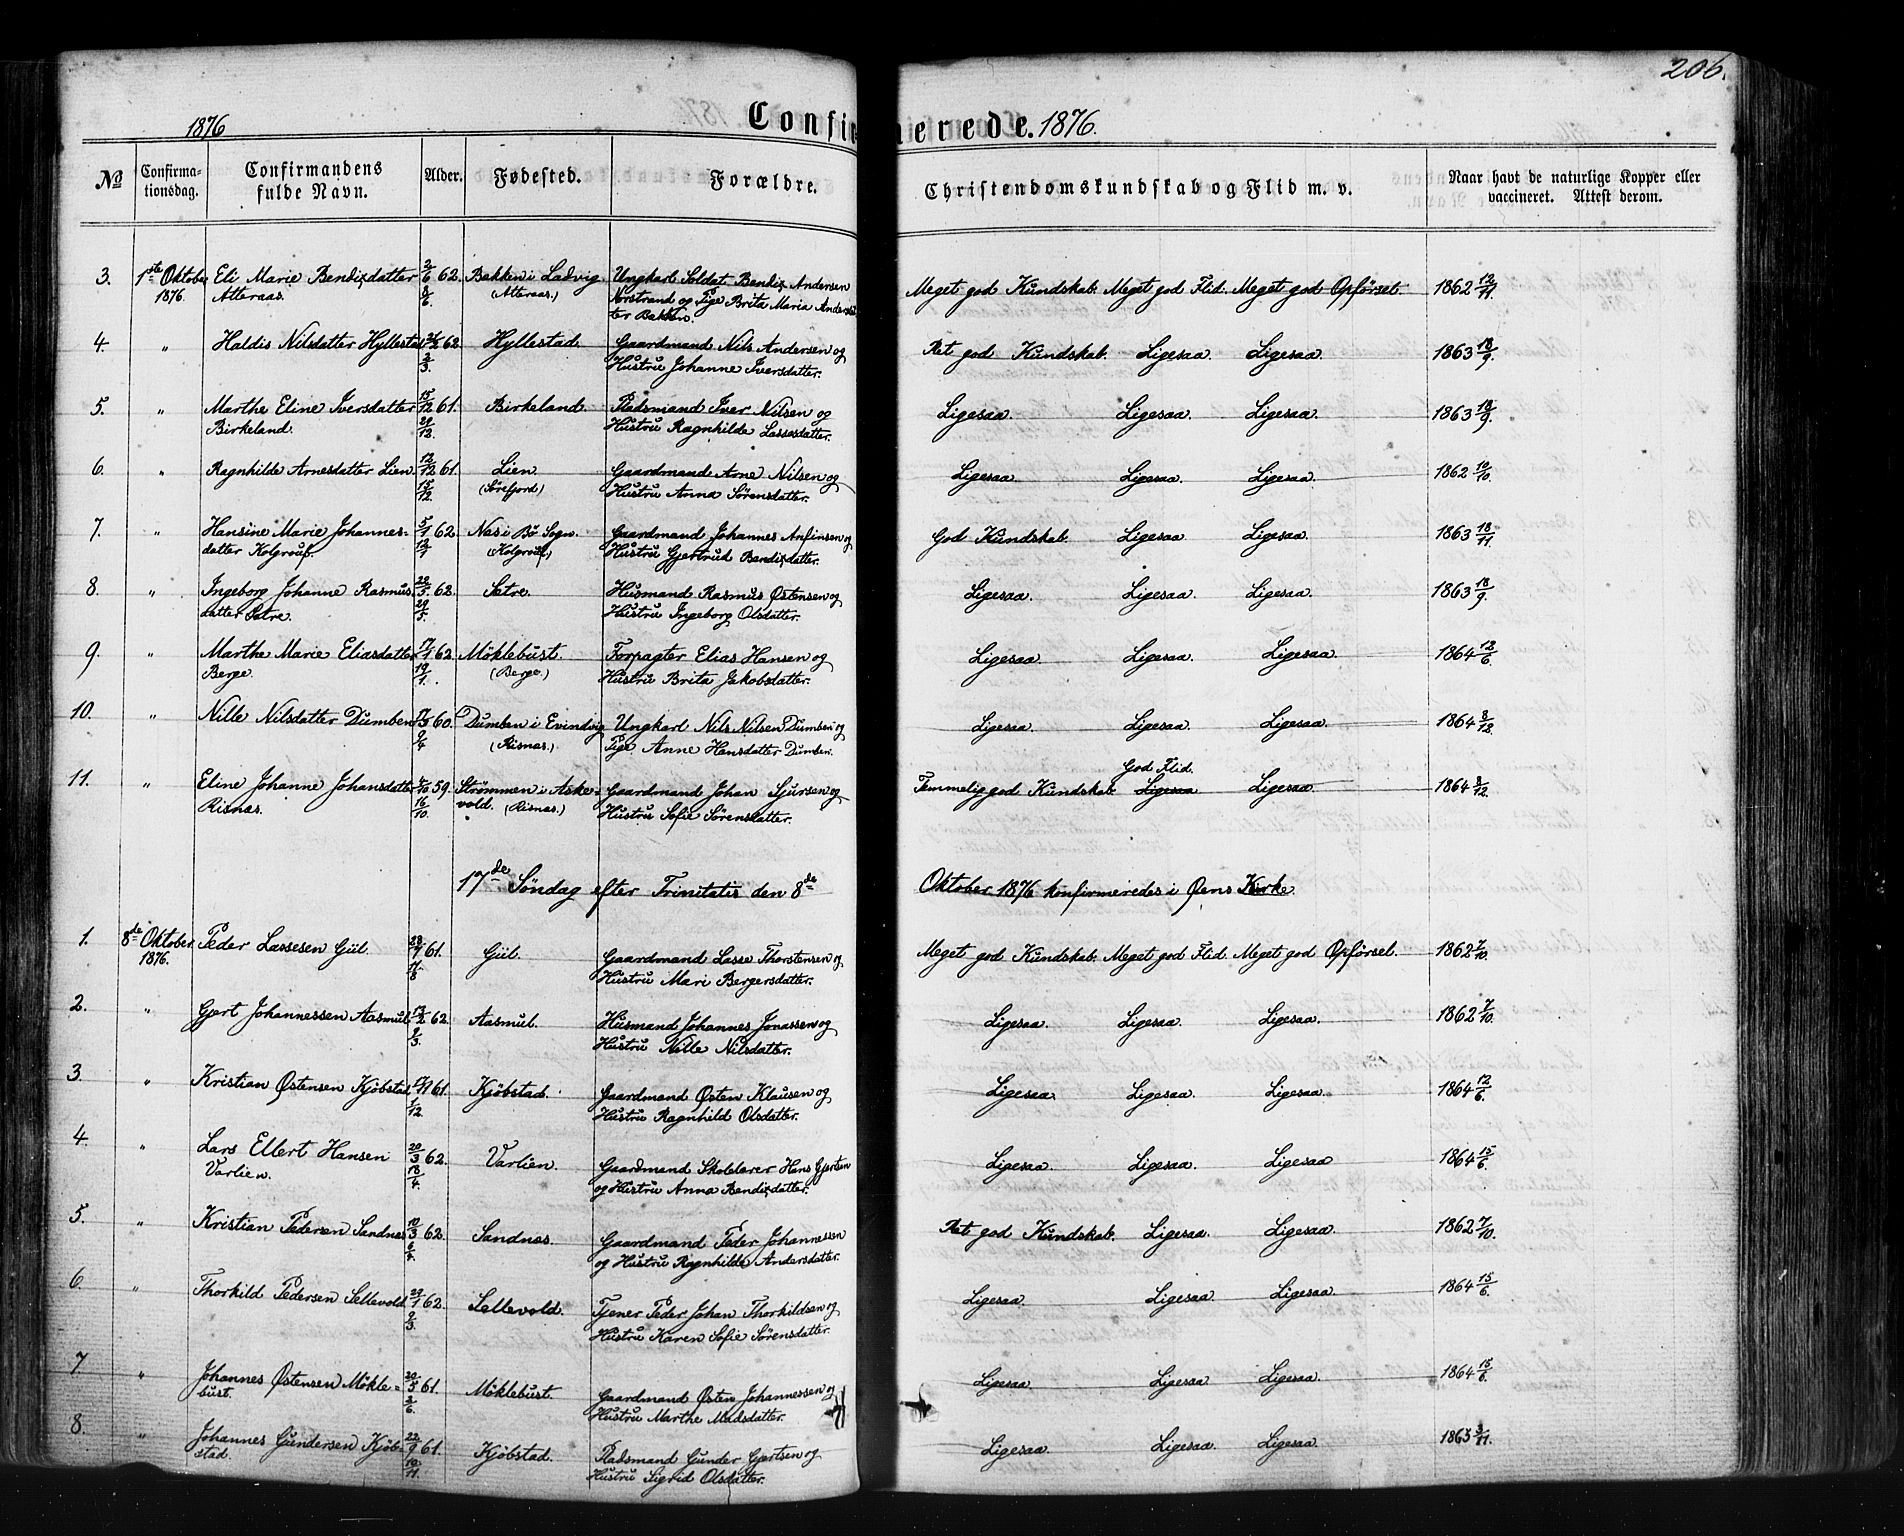 206.
1876 Confirmerede. 1876.
No Confirmationsdag. Confirmandens fulde Navn. Alder. Fødested. Forældre. Christendomskundskab og Flid m. v. Naar havt de naturlige Kopper eller vaccineret. Attest derom.
3. 1ste Oktober Eli Marie Bendixdatter 2/6 62. Bakken i Ladvig Ungkarl Soldat Bendix Andersen Meget god Kundskab. Meget god Flid. Meget god Opførsel. 1862 12/11.
1876. Atteraas. 8/6. (Atteraas.) Norstrand og Pige Brita Maria Andersdat
ter Bakken.
4. " Haldis Nilsdatter Hyllestad 62 Hyllestad. Gaardmand Nils Andersen og Ret god Kundskab. Ligesaa. Ligesaa. 1863 18/9.
2/3. Hustru Johanne Iversdatter.
5. " Marthe Eline Iversdatter 15/12 61. Birkeland. Pladsmand Iver Nilsen og Ligesaa. Ligesaa. Ligesaa. 1863 18/9.
Birkeland. 29/12. Hustru Ragnhilde Lassesdatter.
6. " Ragnhilde Arnesdatter Lien. 12/12 61. Lien. Gaardmand Arne Nilsen og Ligesaa. Ligesaa. Ligesaa. 1862 10/10.
15/12. (Sørefjord) Hustru Anna Sørensdatter.
7. " Hansine Marie Johannes- 5/1 62. Nas i Bø Sogn. Gaardmand Johannes Anfinsen og God Kundskab. Ligesaa. Ligesaa. 1863 18/11.
datter Kolgrouf. 12/1 (Kolgrouf) Hustru Gjertrud Bendixdatter.
8. " Ingeborg Johanne Rasmus 22/5. 62. Sætre. Husmand Rasmus Østensen og Ligesaa. Ligesaa. Ligesaa. 1863 18/9.
datter Sætre. 29/5. Hustru Ingeborg Olsdatter.
9. " Marthe Marie Eliasdatter 17/1 62. Möklebust. Forpagter Elias Hansen og Ligesaa. Ligesaa. Ligesaa. 1864 12/6.
Berge. 19/1. (Berge.) Hustru Brita Jakobsdatter.
10. " Nille Nilsdatter Dumben 17/3 60. Dumben i Evindvig Ungkarl Nils Nilsen Dumben og Ligesaa. Ligesaa. Ligesaa. 1864 8/12.
9/4 (Risnæs.) Pige Anne Hansdatter Dumben.
11. " Eline Johanne Johansdatter 4/10 59. Strømmen i Aske- Gaardmand Johan Sjursen og Temmelig god Kundskab. God Flid. Ligesaa Ligesaa. 1864 8/12.
Risnæs. 16/10. vold. (Risnæs.) Hustru Sofie Sørensdatter.
17de Søndag efter Trinitatis den 8de Oktober 1876 konfirmeredes i Øens Kirke.
1. 8de Oktober Peder Lassesen Gül. 28/7 61. Gül. Gaardmand Lasse Thorstensen og Meget god Kundskab. Meget god Flid. Meget god Opførsel. 1862 7/10.
1876. 11/8 Hustru Mari Bergersdatter.
2. " Gjert Johannessen Aasmul 12/2 62. Aasmul. Husmand Johannes Jonassen og Ligesaa. Ligesaa. Ligesaa. 1862 7/10.
2/3. Hustru Nille Nilsdatter.
3. " Kristian Østensen Kjøbstad 61. Kjøbstad. Gaardmand Østen Klausen og Ligesaa. Ligesaa. Ligesaa. 1864 12/6.
1/12. Hustru Ragnhild Olsdatter.
4. " Lars Ellert Hansen 20/3 62. Varlien. Gaardmand Skolelærer Hans Gjertsen Ligesaa. Ligesaa. Ligesaa 1864 15/6.
Varlien. 18/4. og Hustru Anna Bendixdatter.
5. " Kristian Pedersen Sandnæs 10/3 62. Sandnæs. Gaardmand Peder Johannessen Ret god Kundskab. Ligesaa. Ligesaa. 1862 7/10.
6/4. og Hustru Ragnhilde Andersdatter.
6. " Thorkild Pedersen Sellevold 22/1 62. Sellevold. Tjener Peder Johan Thorkildsen og Ligesaa. Ligesaa. Ligesaa. 1864 15/6.
2/3. Hustru Karen Sofie Sørensdatter.
7 " Johannes Østensen Møkle- 20/5 61. Möklebust. Gaardmand Østen Johannessen og Ligesaa Ligesaa. Ligesaa. 1864 15/6.
bust. 2/6. Hustru Marthe Madsdatter.
8. " Johannes Gundersen Kjøb- 22/9 61. Kjøbstad. Pladsmand Gunder Gjertsen og Ligesaa. Ligesaa. Ligesaa. 1863 3/11.
stad. 10/11. Hustru Sigrid Olsdatter.